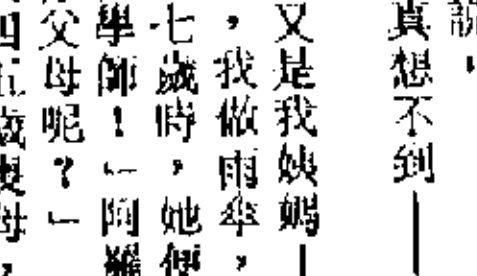 說，
真想不到——
又是我姨媽—
，我做雨傘，
七歲時，她便
學師！」阿羅
父母呢？」
四五歲喪母，